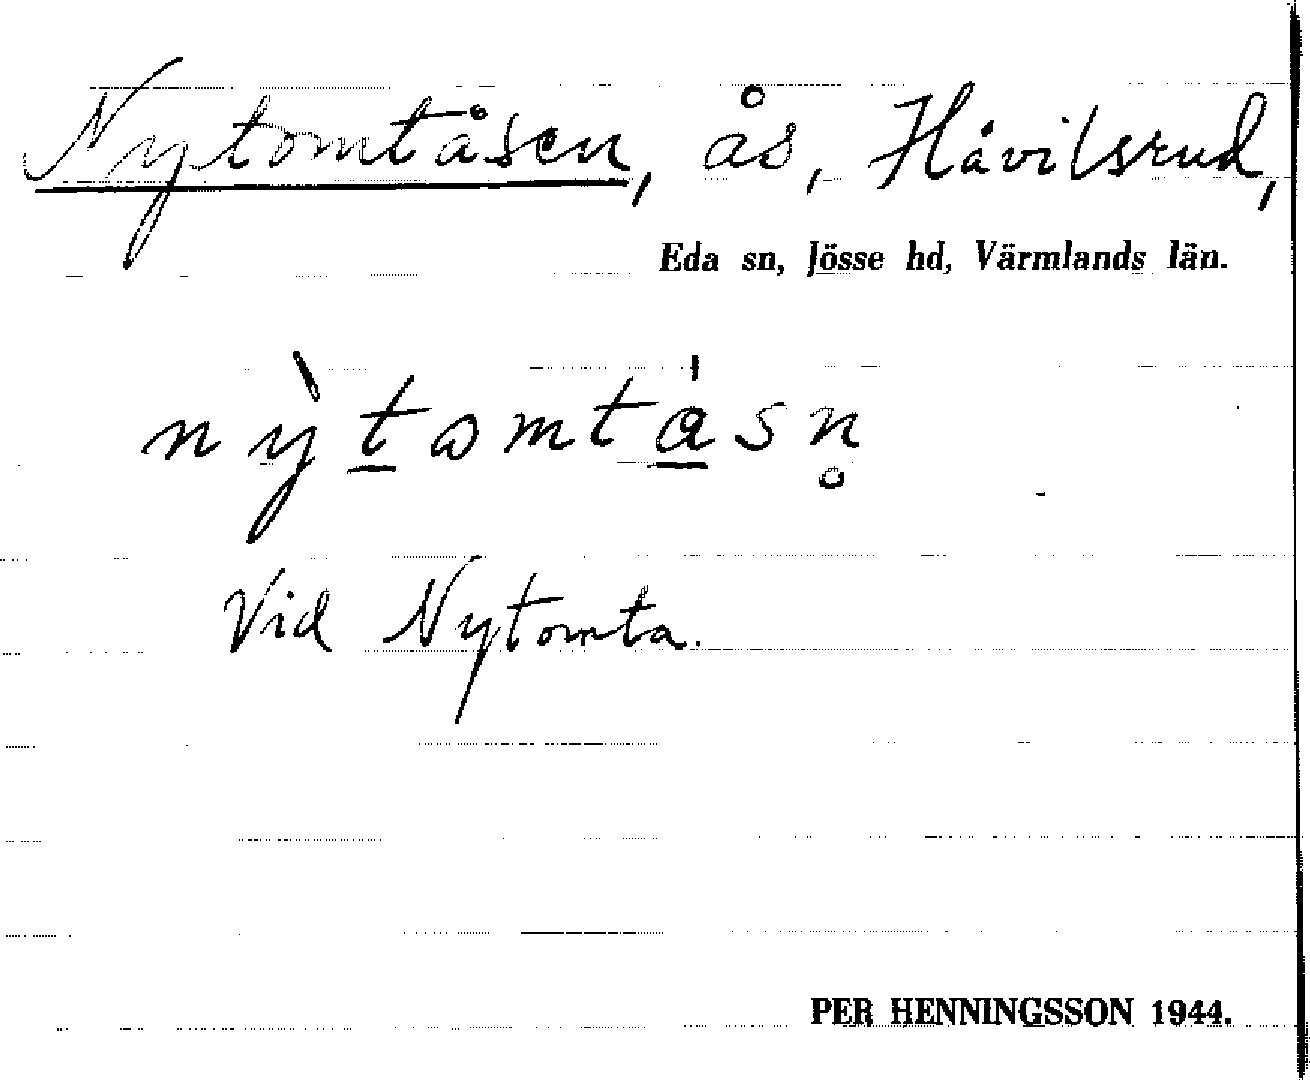 Nytomtåsen, ås, Håvilsrud,
Eda sn, Jösse hd, Värmlands län.
nỳt̲omtá̲sn̥
Vid Nytomta.
PER HENNINGSSON 1944.